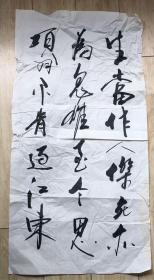 生當作人傑死亦
為鬼雄至今思
項羽不肯過江東